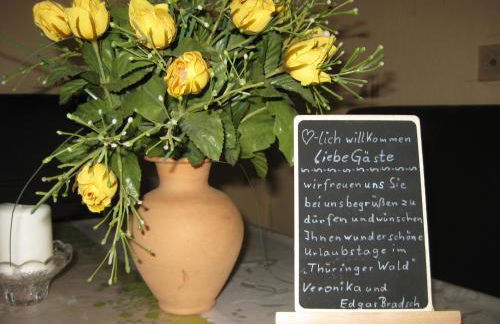 ♡-lich willkommen
liebe Gäste
wir freuen uns Sie
bei uns begrüßen zu
dürfen und wünschen
Ihnen wunderschöne
Urlaubstage im
„Thüringer Wald"
Veronika und
Edgar Bradsch